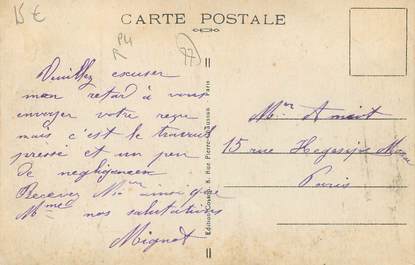 15 €
CARTE POSTALE
77
Veuillez escuser
mon retard à vous
envoyer votre reçu
mais c'est le travail
pressé et un peu
de negligencee
Recevez Mr ainsi que
Mme nos salutations
Mignot
Edition 8, Rue Pierre Paris
Mr Amiot
15 rue Hegesippe Moreau
Paris